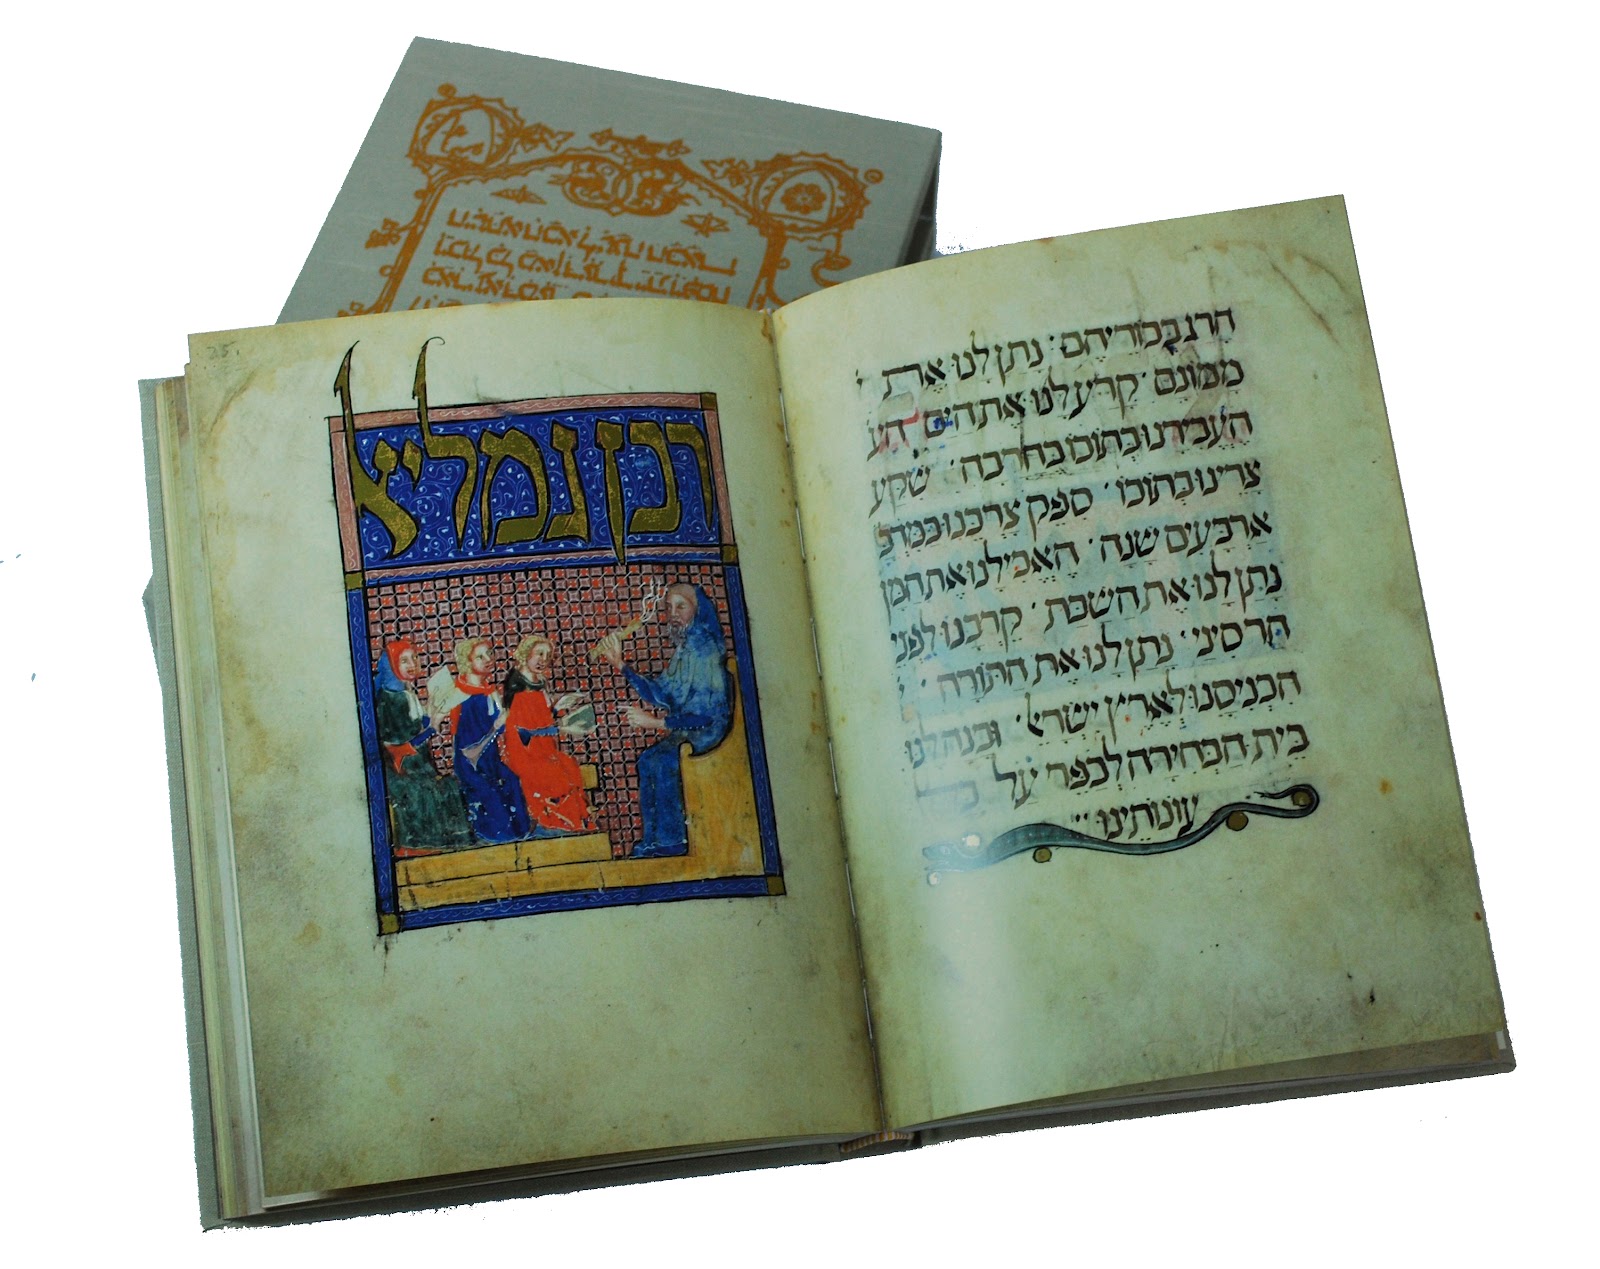 הרג בכוריהם · נתן לנו את
ממונם · קרע לנו את הים · הע
העבירנו בתוכו בחרבה · שקע
צרינו בתוכו · ספק צרכנו במד
ארבעים שנה · האכילנו את המן
נתן לנו את השבת · קרבנו לפני
הר סיני · נתן לנו את התורה ·
הכניסנו לארץ ישראל · ובנה לנו
בית הבחירה לכפר על כל
עונותינו
רבן גמליא